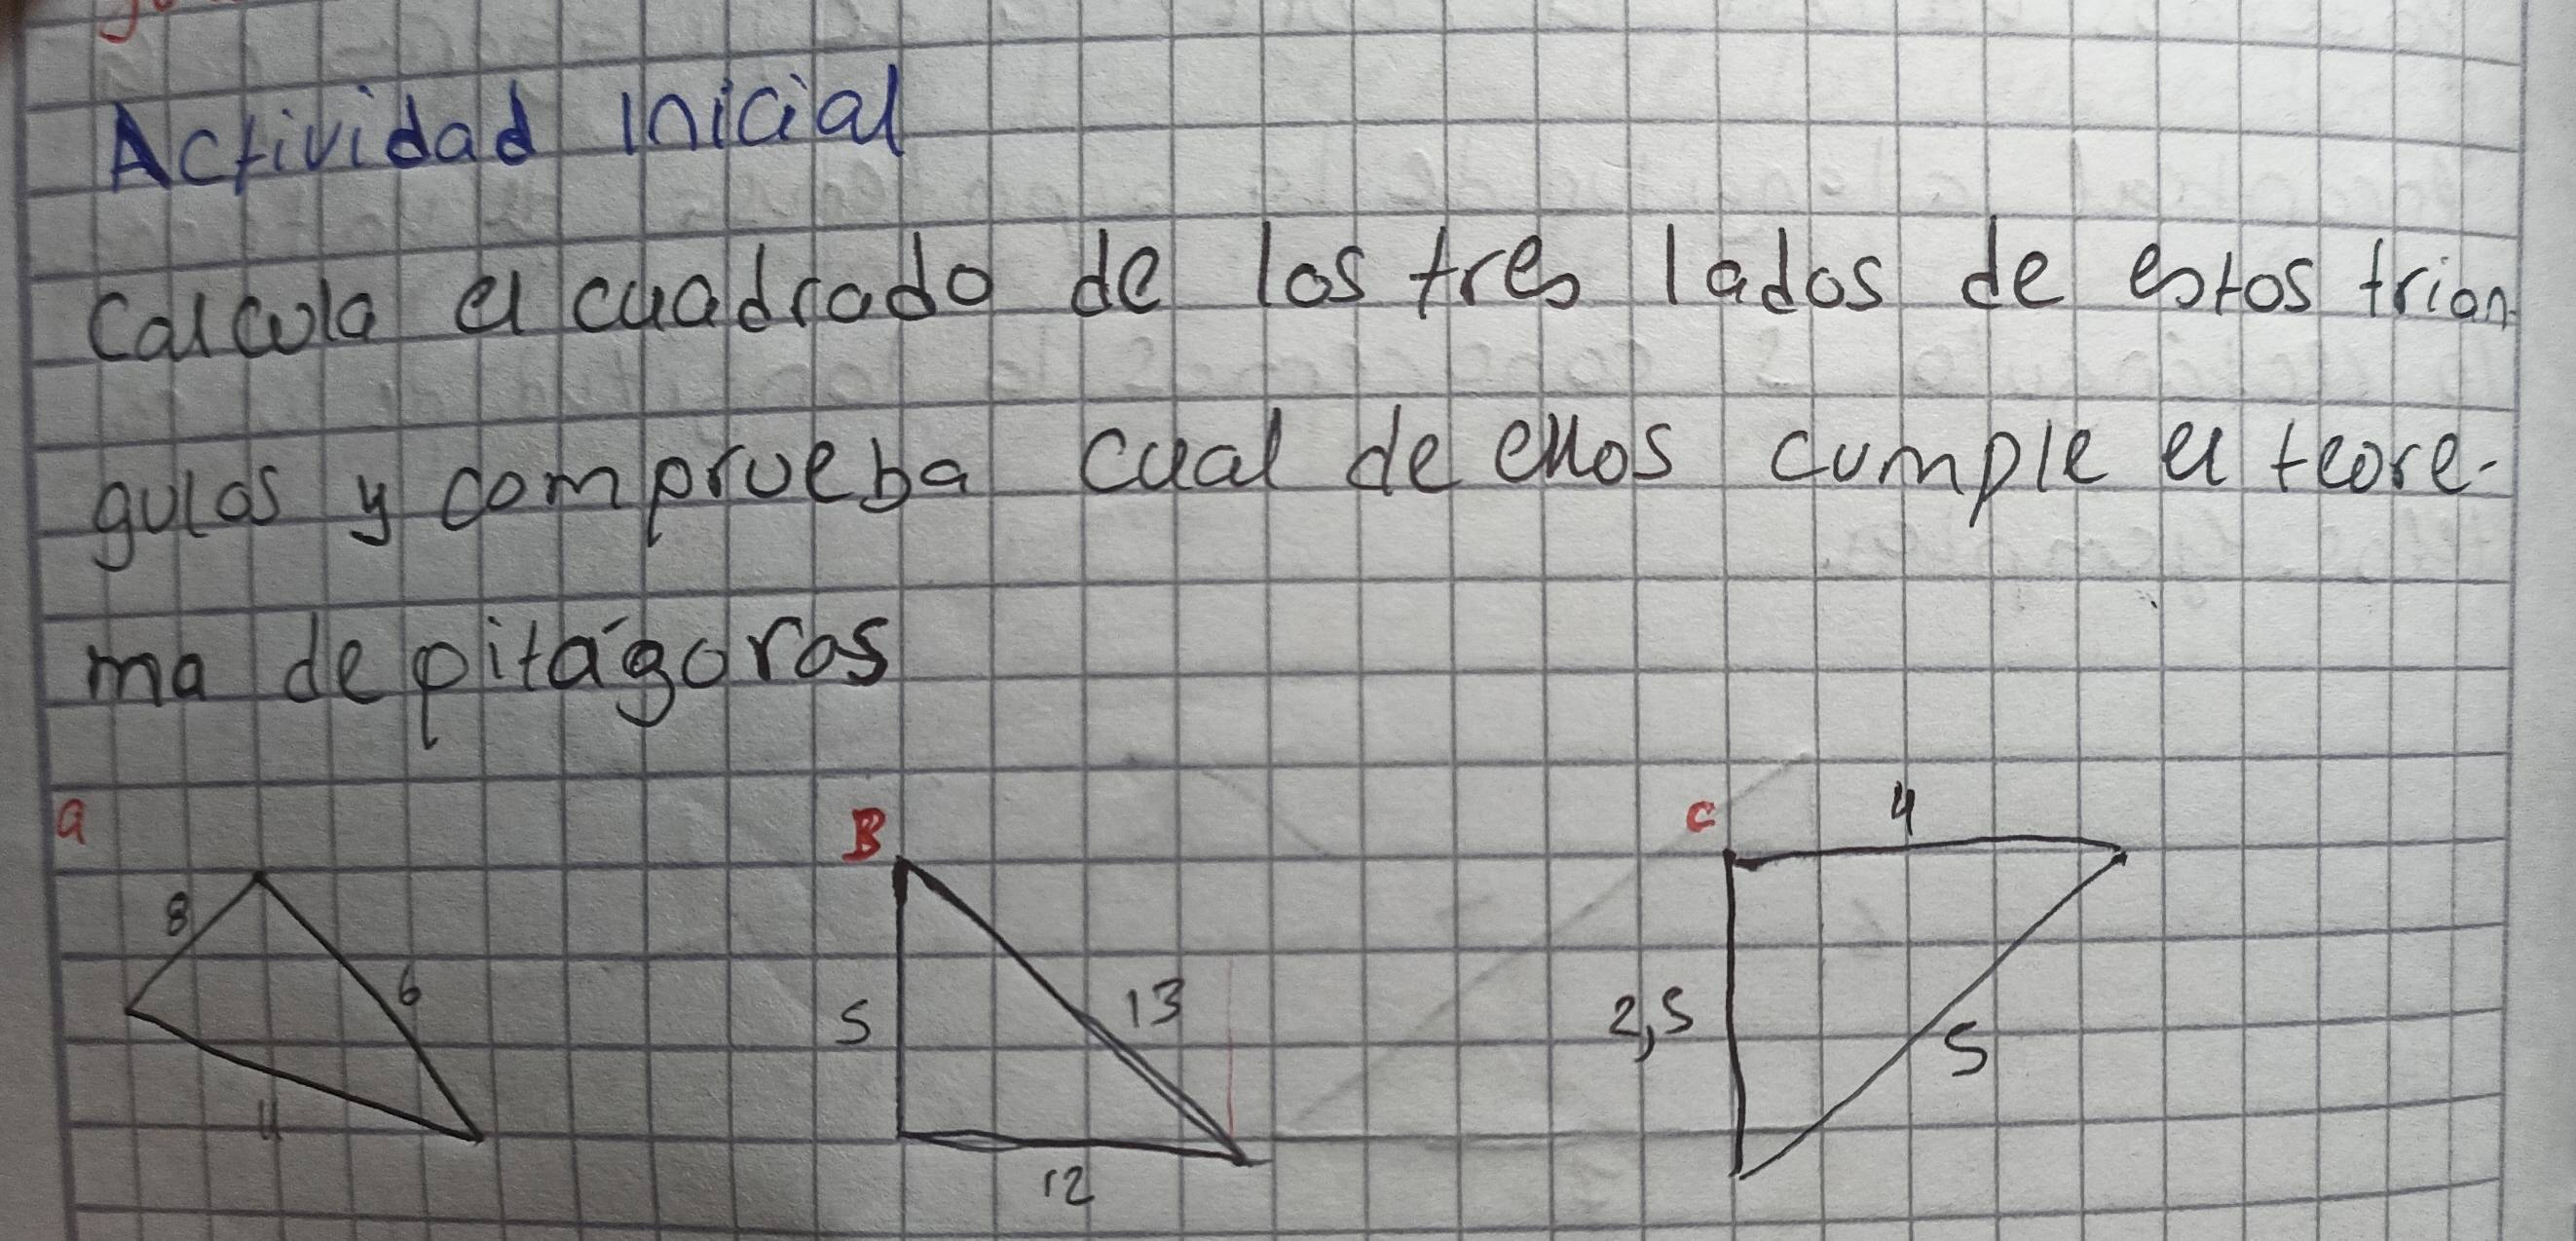 Actividad inicial
Calcula el cuadrado de los tres lados de estos trian-
gulos y comprueba cual de ellos cumple el teore-
ma de pitágoras
a B c 4
8 6 5 13 2,5 5
11 12